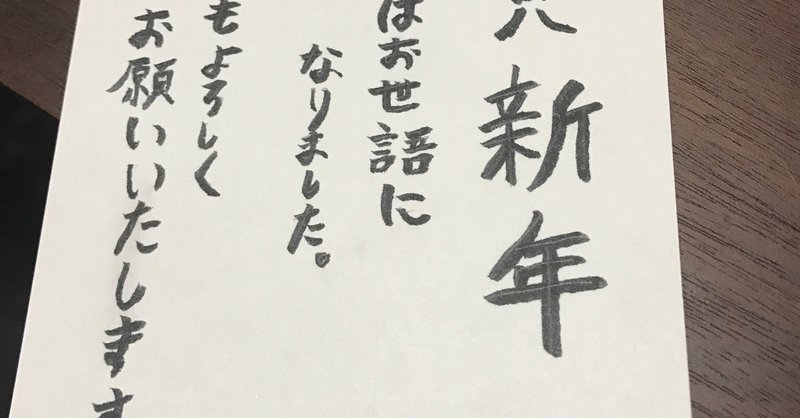 新年
はおせ語に
なりました。
もよろしく
お願いいたします